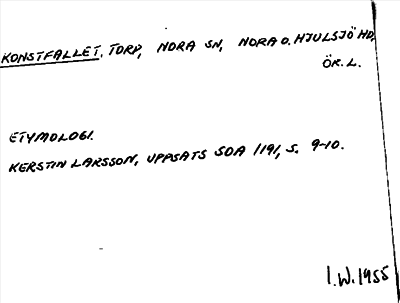 KONSTFALLET, TORP, NORA SN, NORA O. HJULSJÖ HD,
ÖR. L.
ETYMOLOGI.
KERSTIN LARSSON, UPPSATS SOA 1191, S. 9-10.
I.W. 1955